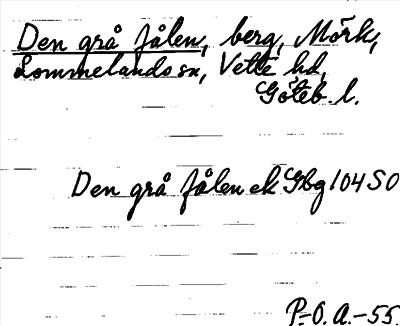 Den grå fålen, berg, Mörk,
Lommelands sn, Vette hd,
Göteb. l.
Den grå fålen ek Gbg 104 SO
P.-O. A.-55.